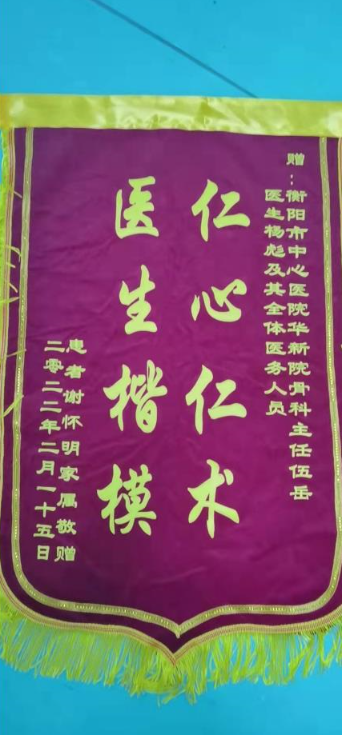 赠：衡阳市中心医院华新院骨科主任伍岳
医生杨彪及其全体医务人员
仁心仁术
医生楷模
患者谢怀明家属敬赠
二零二二年二月一十五日